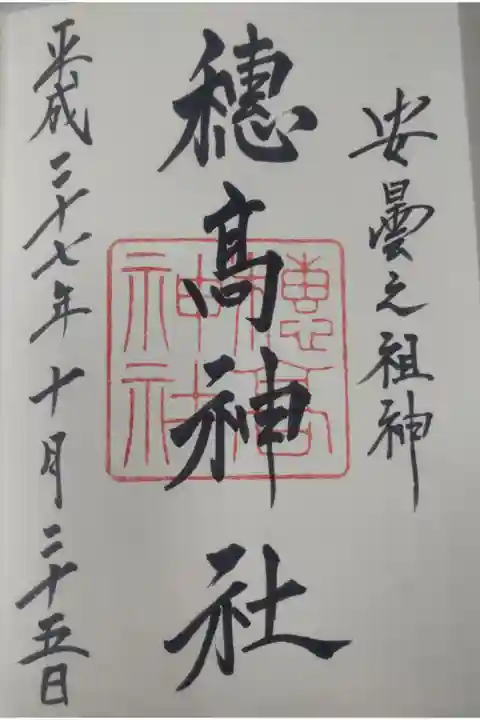 安曇之祖神
穂髙神社
穂高神社
平成二十七年十月二十五日